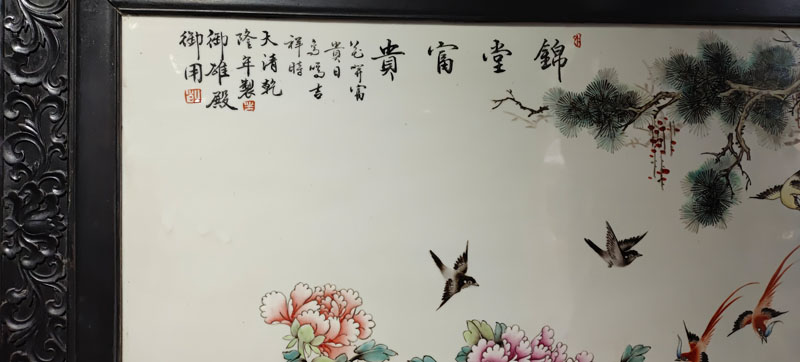 錦堂富貴
花開富
貴日
鳥鳴吉
祥時
大清乾
隆年製
御雄殿
御用